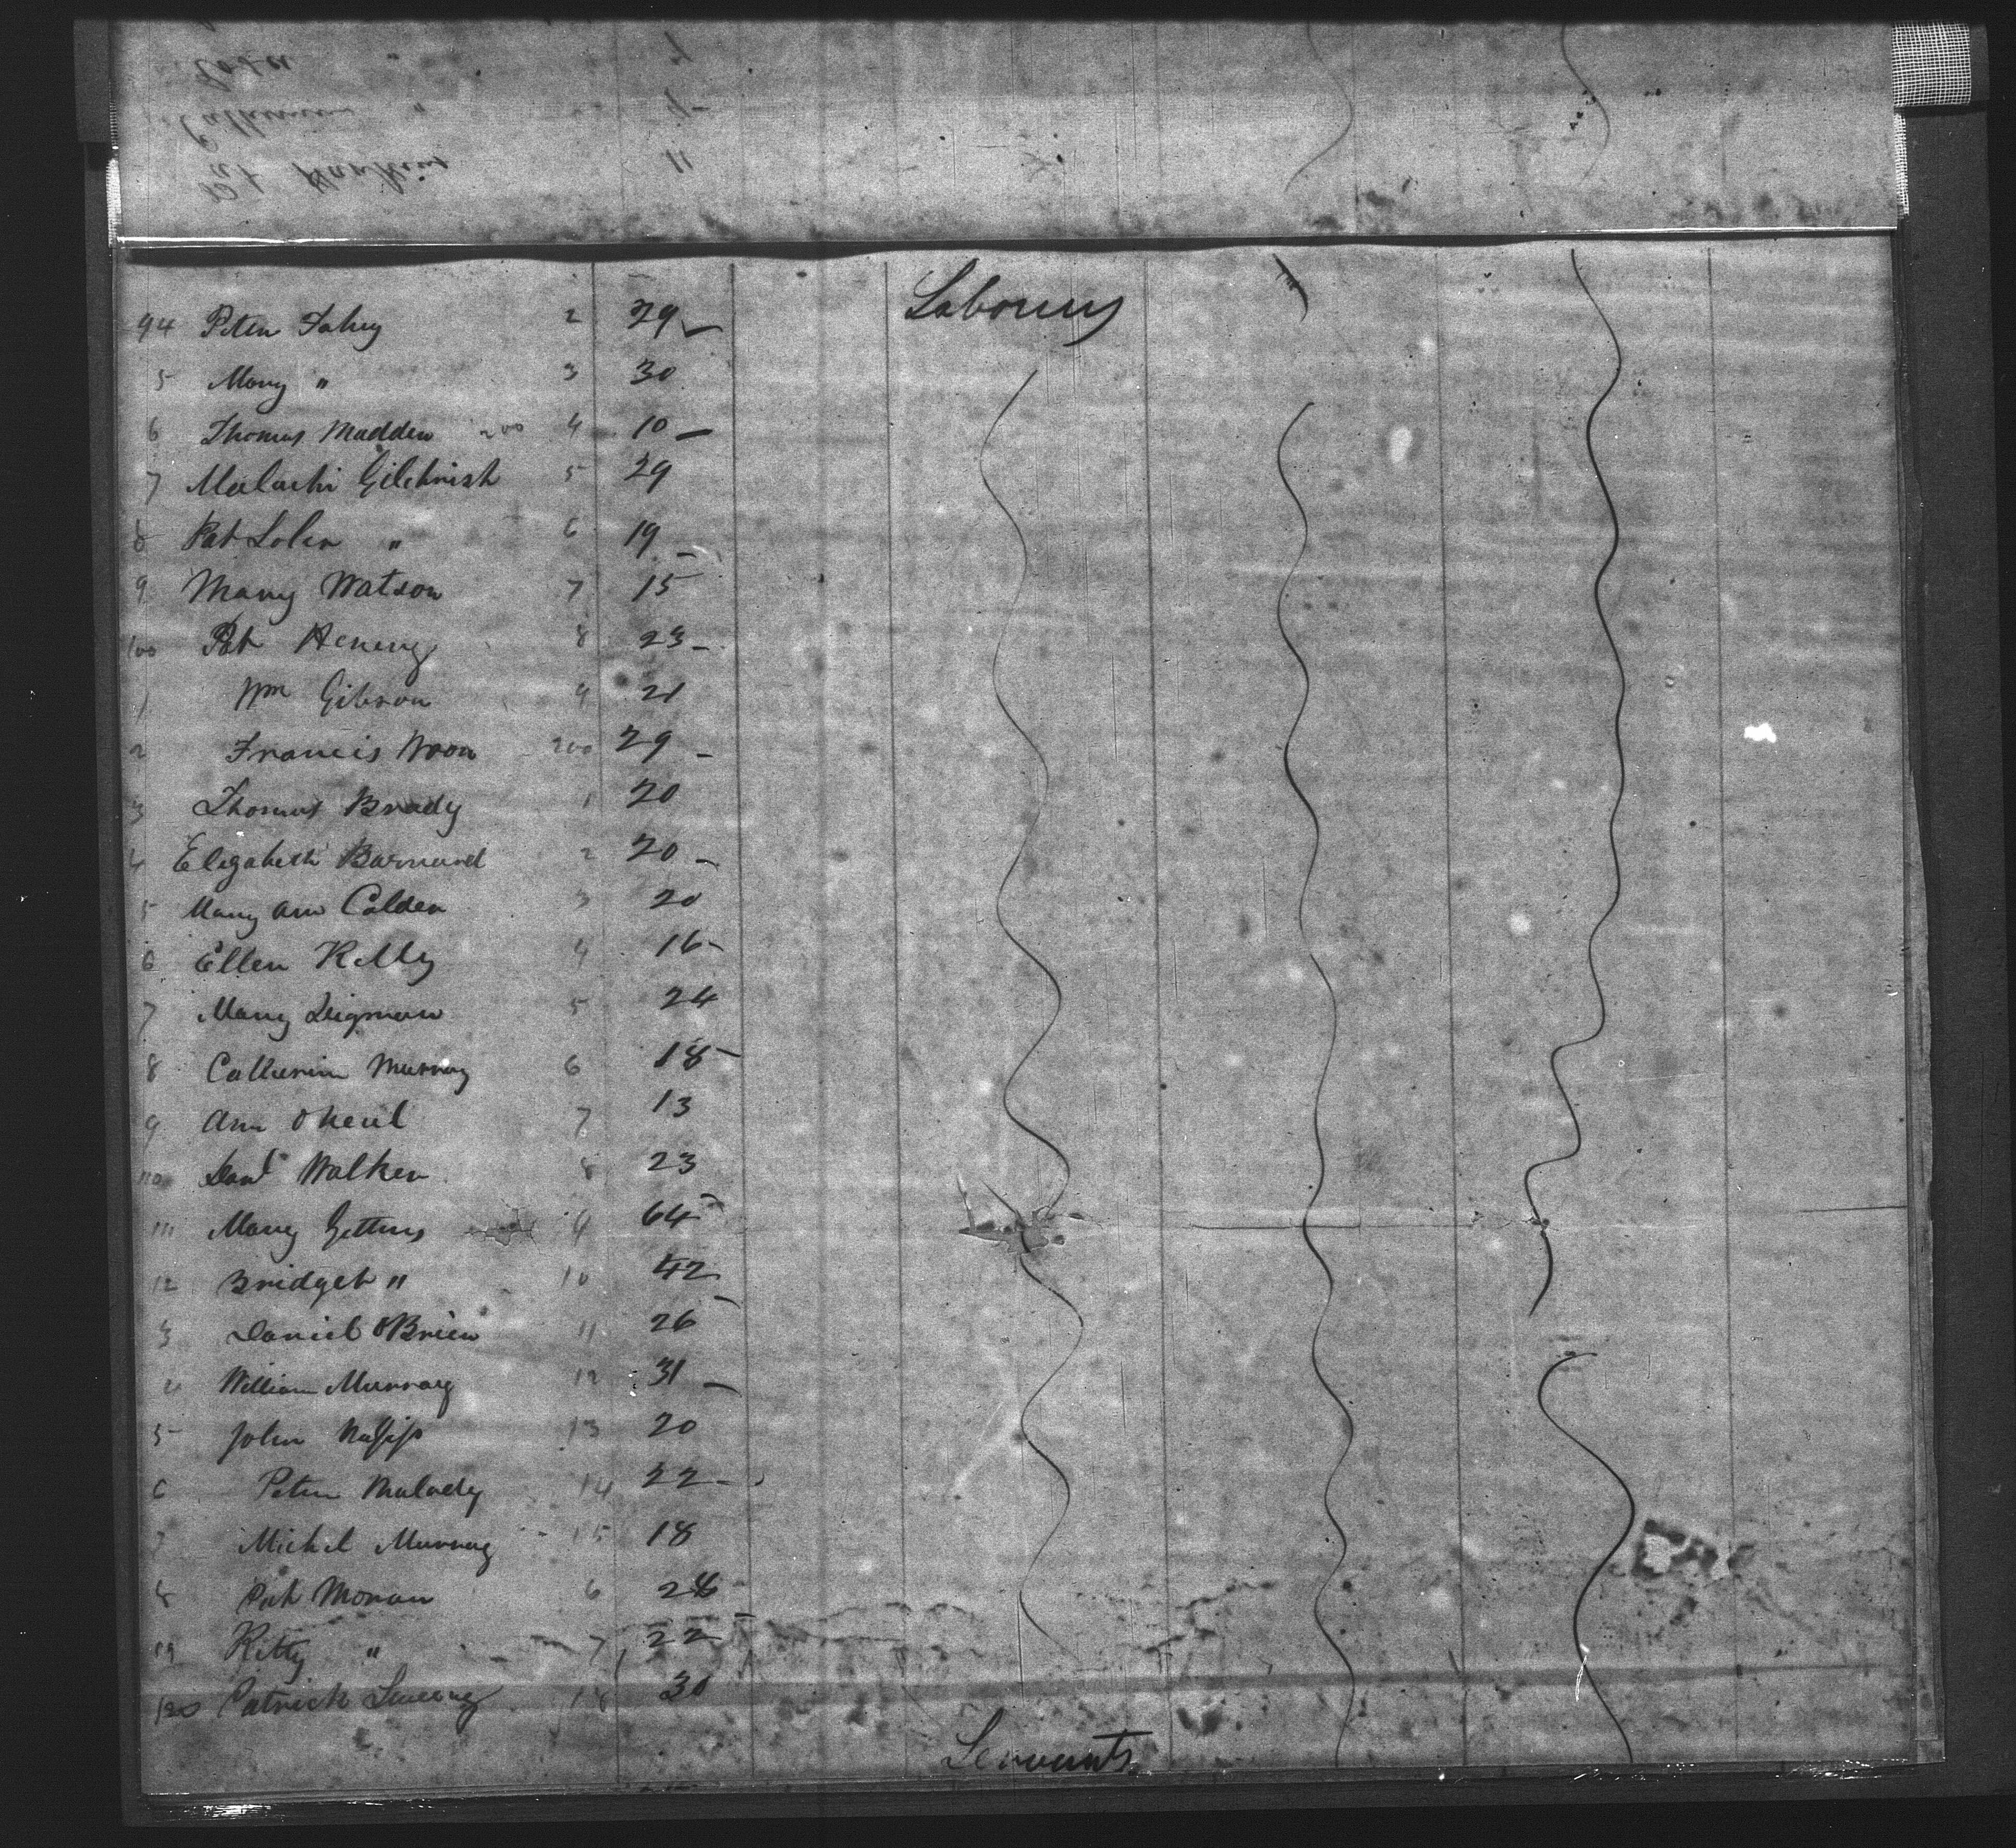 Pat Hankins 11
Labourers
94 Peter Fahey 2 29
5 Mary " 3 30
6 Thomas Madden 200 4 10
7 Malachi Gilchrish 5 29
8 Pat Lolen " 6 19
9 Mary Watson 7 15
100 Pat Heneng 8 23
1 Wm Gibson 9 21
2 Francis Noon 200 29
3 Thomas Brady 1 20
4 Elizabeth Barnard 2 20
5 Mary Ann Colden 3 20
6 Ellen Kelly 4 16
7 Mary Digman 5 24
8 Catherine Murray 6 18
9 Ann O Neil 7 13
110 Danl Walker 8 23
111 Mary Gettins 9 64
12 Bridget " 10 42
3 Daniel OBrien 11 26
4 William Murray 12 31
5 John 13 20
6 Peter Malady 14 22
7 Michel Murray 15 18
8 Pat Moran 6 28
19 Kitty " 7 22
120 Patrick 18 30
Servants